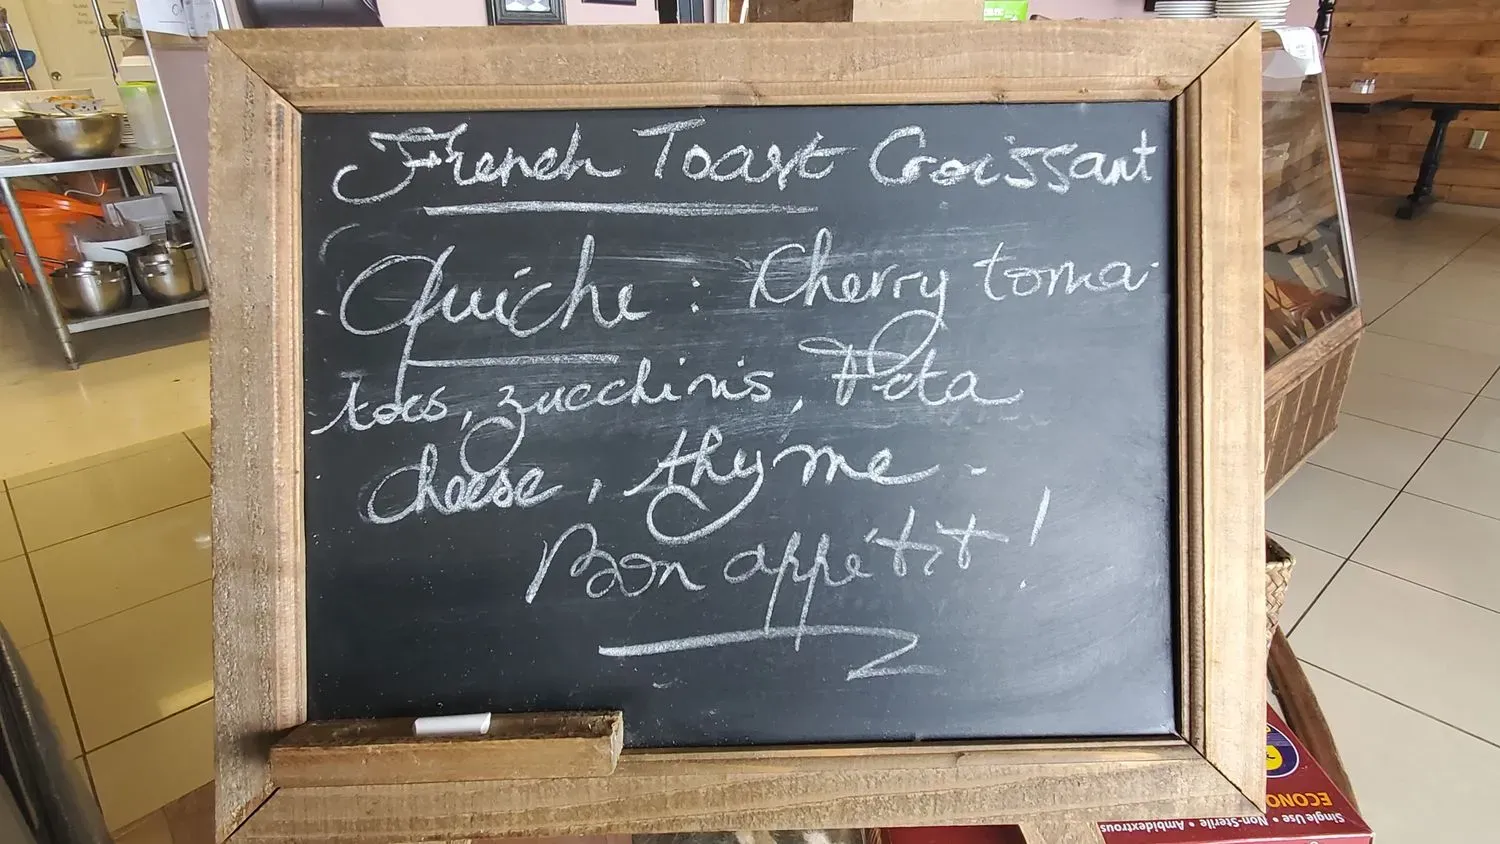 French Toast Croissant
Quiche : Cherry toma-
toes, zucchinis, Feta
cheese, thyme.
Bon appétit !
ECONO
Single Use • Non-Sterile • Ambidextrous